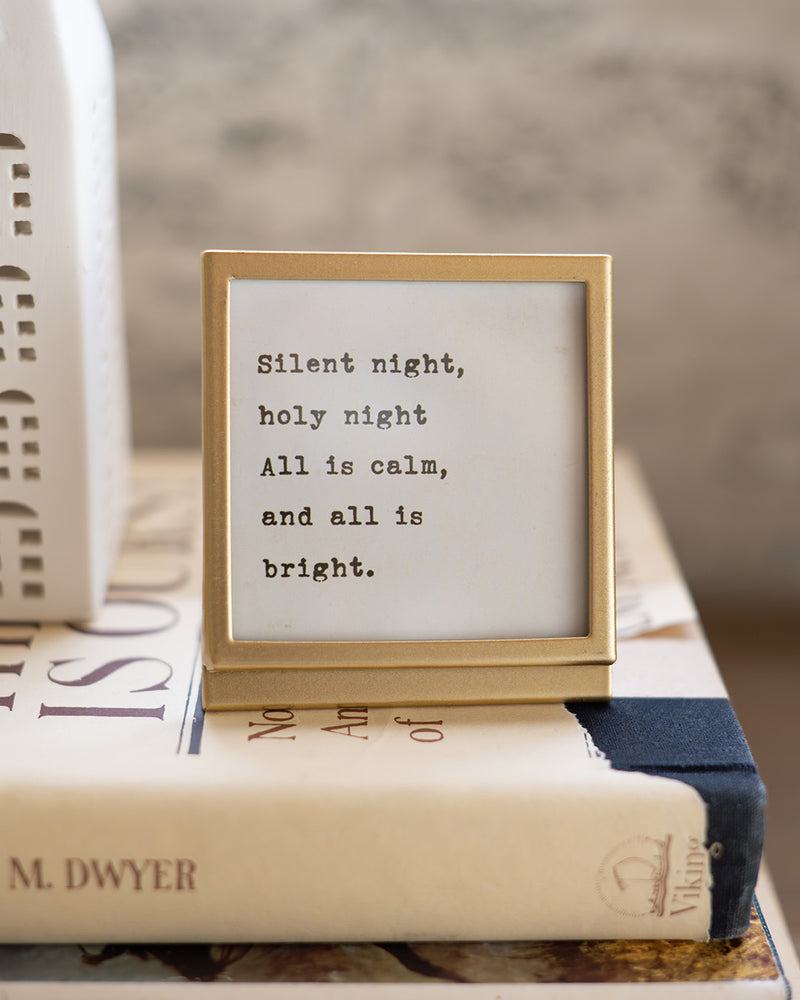 Silent night,
holy night
All is calm,
and all is
bright.
IS
No
An
of
M. DWYER
Viking